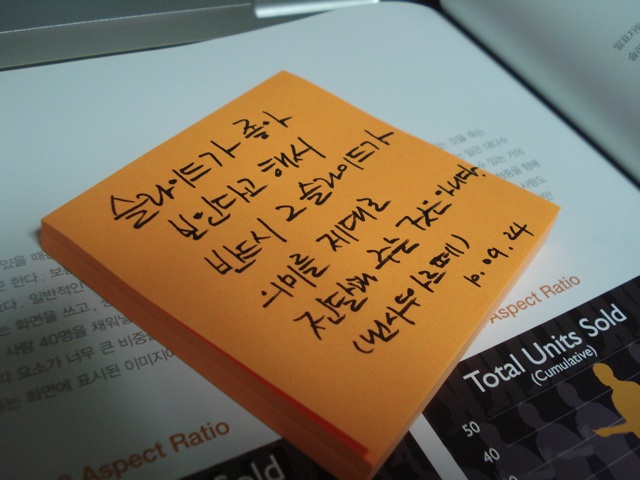 슬라이드가 좋아
보인다고 해서
반드시 그 슬라이드가
의미를 제대로
전달해 주는 것은 아니다.
(낸시두아르떼)
10.09.24
있을 때
고 한다.
다. 일반적인
는 화면을 쓰고,
사람 40명을
요소가 너무 큰
하는 화면에 표시된
Aspect Ratio
Sold
Aspect Ratio
Total Units Sold
(Cumulative)
50
40